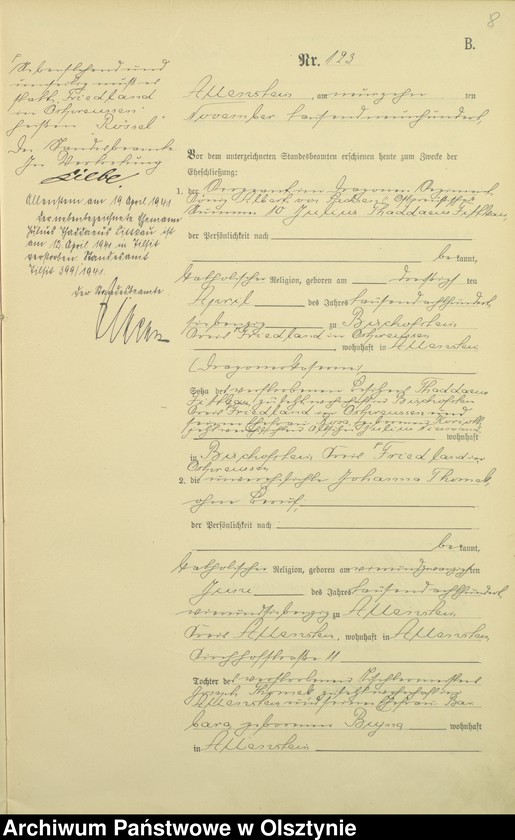 8
B.
Nr. 123
Allenstein, am vierzehn ten
November tausendneunhundert
Vor dem unterzeichneten Standesbeamten erschienen heute zum Zwecke der
Eheschließung:
1. der Sergeant im Dragoner Regiment
König Albert von Sachsen
Nummer 10 Julius Thaddaeus
der Persönlichkeit nach
bekannt,
katholischer Religion, geboren am
April des Jahres tausend achthundert
siebenzig zu Bischofstein
Kreis Friedland in Ostpreussen
wohnhaft in Allenstein
(Dragonerkaserne)
Sohn des verstorbenen Thaddaeus
zuletzt wohnhaft in Bischofstein
Kreis Friedland in Ostpreussen und
seiner Ehefrau
wohnhaft
in Bischofstein Kreis Friedland in
Ostpreussen
2. die unverehelichte Johanna Thomek,
ohne Beruf,
der Persönlichkeit nach
bekannt,
katholischer Religion, geboren am vierundzwanzigsten
Juni des Jahres tausend achthundert
vierundsiebenzig zu Allenstein
Kreis Allenstein, wohnhaft in Allenstein
Kirchhofstraße 11
Tochter des verstorbenen Tischlermeisters
Joseph Thomek zuletzt wohnhaft in
Allenstein und seiner Ehefrau Bar
bara geborenen wohnhaft
in Allenstein
Nebenstehend und
umseitig muß es
statt "Friedland
in Ostpreussen"
heißen "Rössel".
Der Standesbeamte
In Vertretung
Liebe.
Allenstein am 19 April 1941
Der nebenbezeichnete Ehemann
Julius Thaddaeus Littwau ist
am 12. April 1941 in Tilsit
verstorben Standesamt
Tilsit 399/1941.
Der Standesbeamte
Archiwum Państwowe w Olsztynie